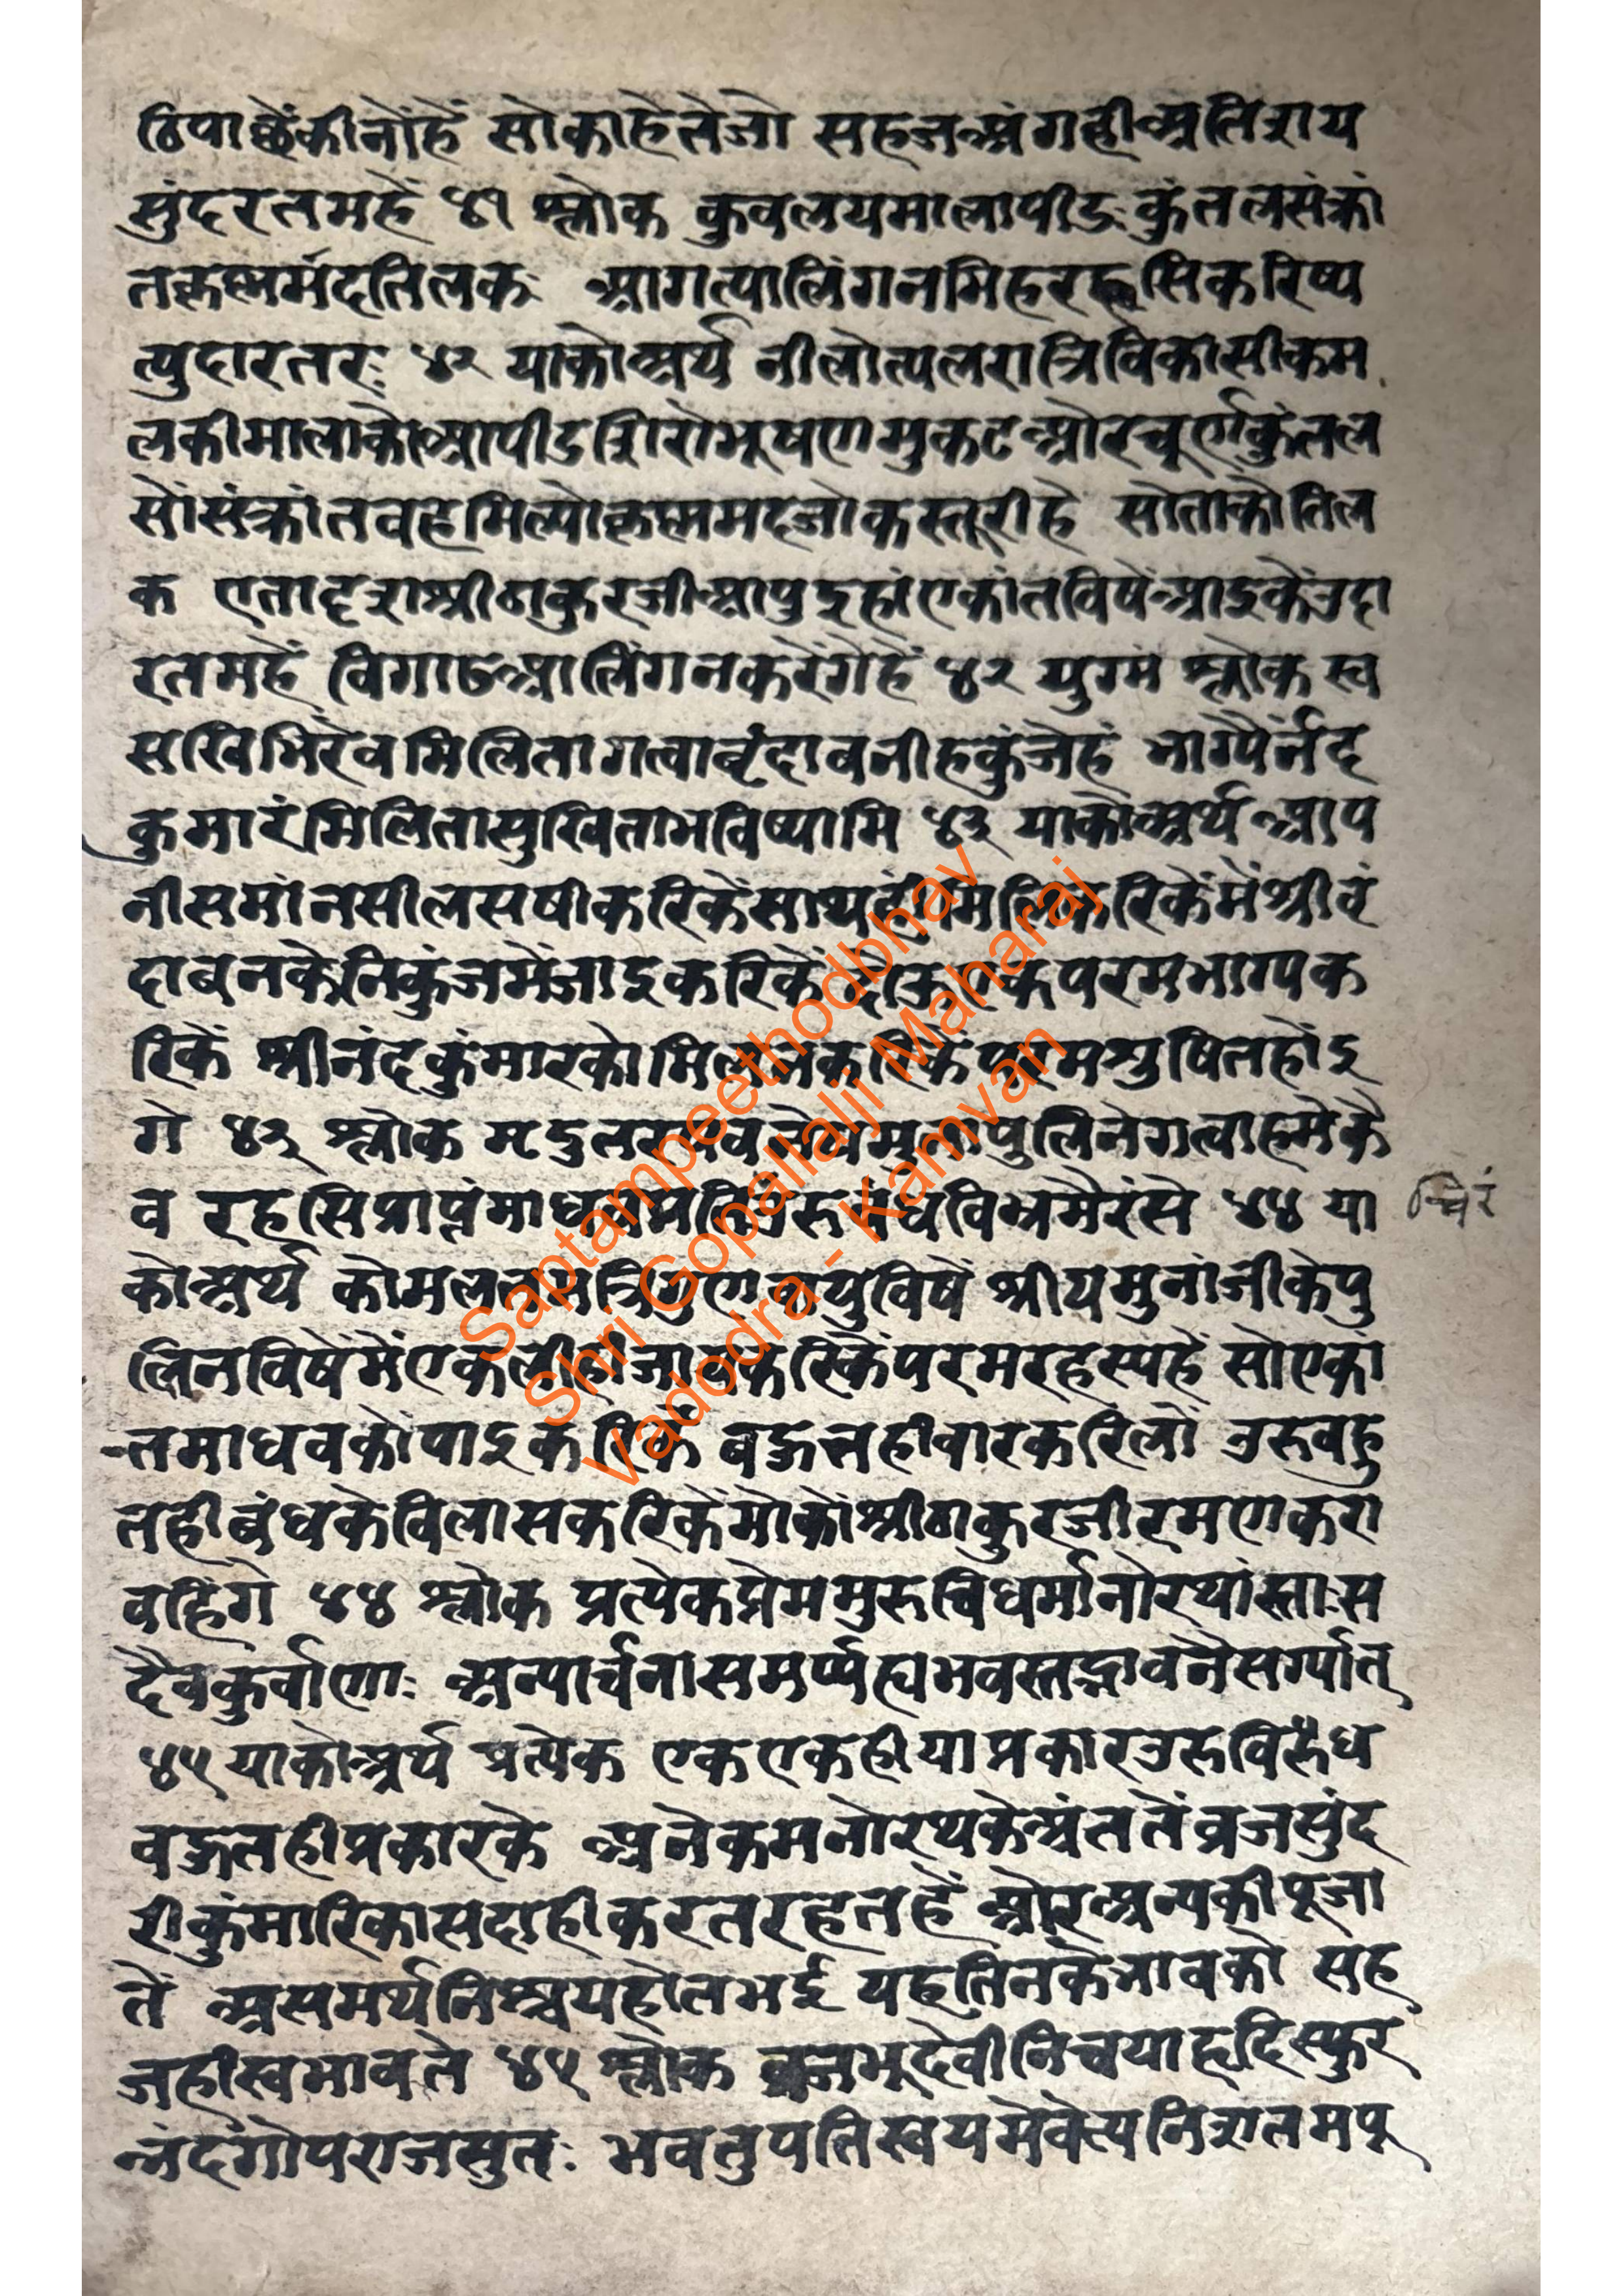 ठिपाछैंकीनोंहें सोकाहेतेजो सहजअंगहीअतिशय
सुंदरतमहें ४१ श्लोक कुवलयमालापीडःकुंतलसंक्रां
तकृष्णमदतिलकः आगत्यालिंगनमिहरहसिकरिष्य
त्युदारतरः ४२ याकोअर्थ नीलोत्पलरात्रिविकासीकम
लकीमालाकोआपीडशिरोभूषणमुकटओरचूर्णकुंतल
सोंसंक्रांतवहमिल्योकृष्णमदजोकस्तूरीहे सोताकोतिल
क एतादृशश्रीठाकुरजीआपुइहांएकांतविषेंआइकेंउदा
रतमहें विगाढआलिंगनकरेंगेहें ४२ युग्मं श्लोक स्व
सखिभिरेवमिलितागत्वाबृंदावनीहकुंजेहं भाग्यैर्नंद
कुमारंमिलितासुखिताभविष्यामि ४३ याकोअर्थ आप
नीसमांनसीलसषीकरिकेंसाथहीमिलिकरिकेंमेंश्रीवृं
दाबनकेनिकुंजमेंजाइकरिकें परमभाग्यक
रिकें श्रीनंदकुंमारकोमिलनकरिकें परमशुषितहोंइ
गे ४३ श्लोक मृदुल पुलिनेगत्वाहमेकै
व रहसिप्राप्तंमाधव ४४ या
कोअर्थ कोमलतमत्रिगुणवायुविषें श्रीयमुनांजीकेपु
लिनविषेंमेंएकलीहीजायकरिकेंपरमरहस्यहें सोएकां
तमाधवकोंपाइकरिकें बहुतहीवारकरिलों उरुवहु
तहीबंधकेविलासकरिकेंमोकोंश्रीठाकुरजीरमणकरा
वहिंगे ४४ श्लोक प्रत्येकप्रेममुरुविधर्मानोरथांस्ताःस
दैवकुर्वाणाः अन्यार्चनासमर्प्यह्यभवस्तद्भावनैसर्ग्यात्
४५ याकोअर्थ प्रत्येक एकएकहीयाप्रकारउरु
वहुतहीप्रकारके अनेकमनोरथकेअंततेंव्रजसुंद
रीकुंमारिकासदाहीकरतरहतहें ओरअन्यकीपूजा
तें असमर्थनिश्चयहोतभई यहतिनकेभावको सह
जहीस्वभावते ४५ श्लोक व्रजभूदेवीनिचयाहृदिस्फुर
न्नंदगोपराजसुतः भवतुपतिस्वयमेवेत्यनिशतमपू